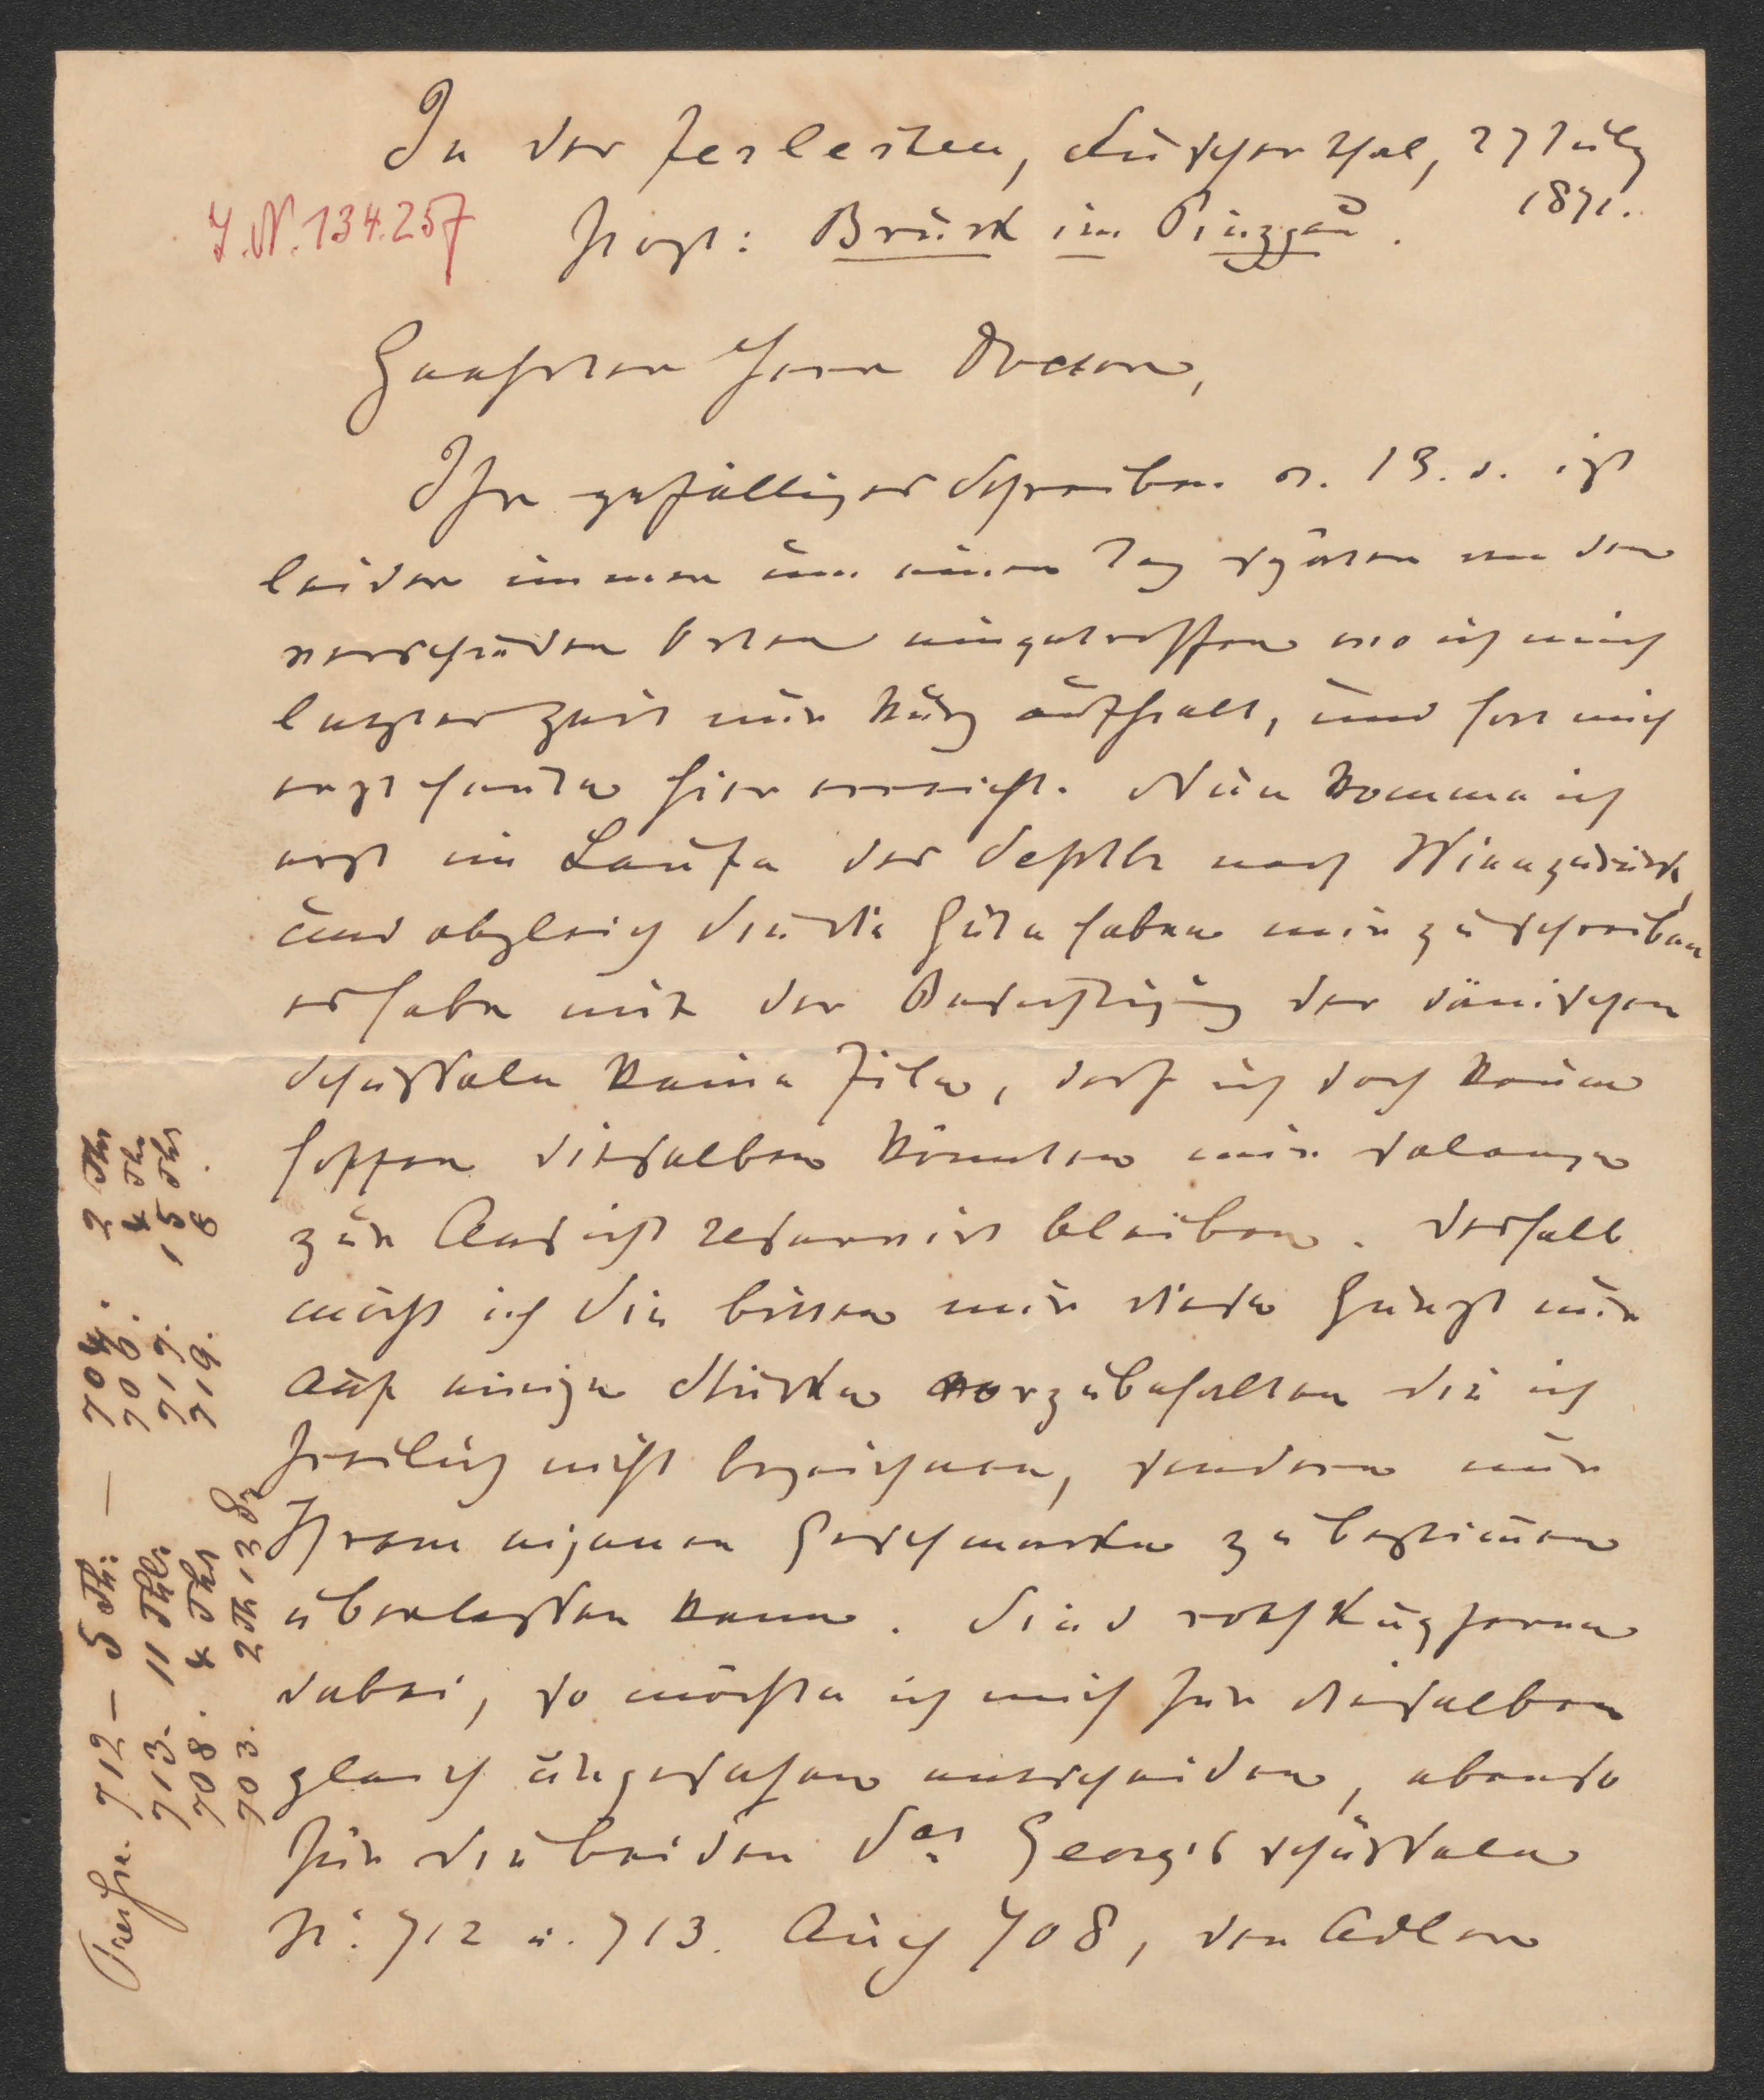 In der Ferleiten, Fuscher Thal, 27 July
1871.
I.N. 134.257
Post: Bruck im Pinzgau.
Geehrter Herr Doctor,
Ihr gefälliges Schreiben v. 13. d. ist
leider immer um einen Tag später an den
verschieden Orten eingetroffen wo ich mich
letzter Zeit nur kurz aufhalt, und hat mich
erst heute hier erreicht. Nun komme ich
erst im Laufe des Septbr nach Wien zurück,
und obgleich Sie die Güte haben mir zu schreiben
es habe mit der Besichtigung der dänischen
Schüsseln keine Eile, darf ich doch kaum
hoffen dieselben könnten mir solange
zur Ansicht reservirt bleiben. Deshalb
möcht ich Sie bitten mir diese Gunst nur
auf einige Stücke vorzubehalten die ich
freilich nicht bezeichnen, sondern nur
Ihrem eigenen Geschmacke zu bestimmen
überlassen kann. Sind roth Kupferne
dabei, so möchte ich mich für dieselben
gleich ungesehen entscheiden, ebenso
für die beiden Sct Georgs schüsseln
N: 712 u. 713. Auch 708, den Adler
Preise. 712 – 5 Th: — 704. 2 Thr
713. 11 Thlr 706. 4 Thr
708. 4 Thr 717. 15 Thr
703. 2 Th 13 Sr 719. 8.